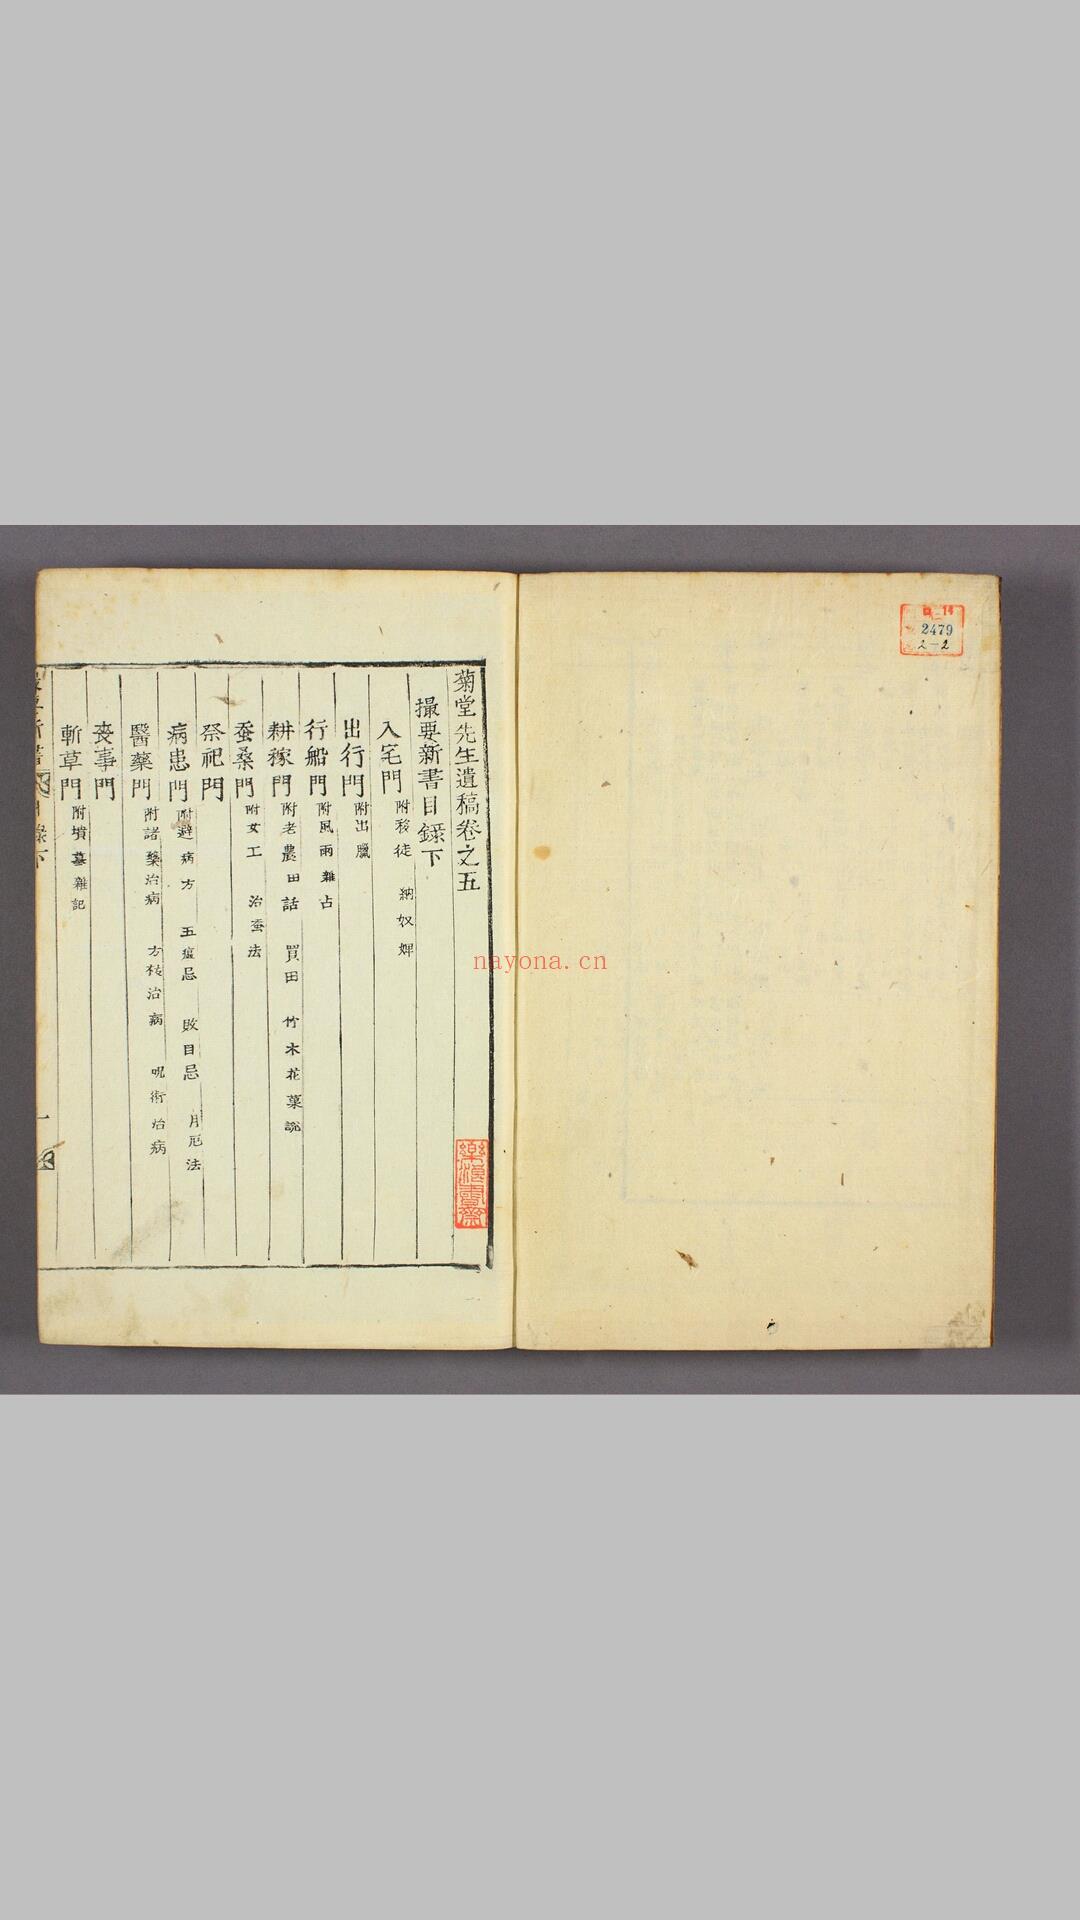 2479
2-2
菊堂先生遺稿卷之五
撮要新書目錄下
入宅門 附移徒 納奴婢
出行門 附出獵
行船門 附風雨雜占
耕稼門 附老農田話 買田 竹木花菓說
蚕桑門 附女工 治蚕法
祭祀門
病患門 附避病方 五瘟忌 敗目忌 月厄法
醫藥門 附諸藥治病 方 治病 呪術治病
喪事門
斬草門 附墳墓雜記
nayona.cn